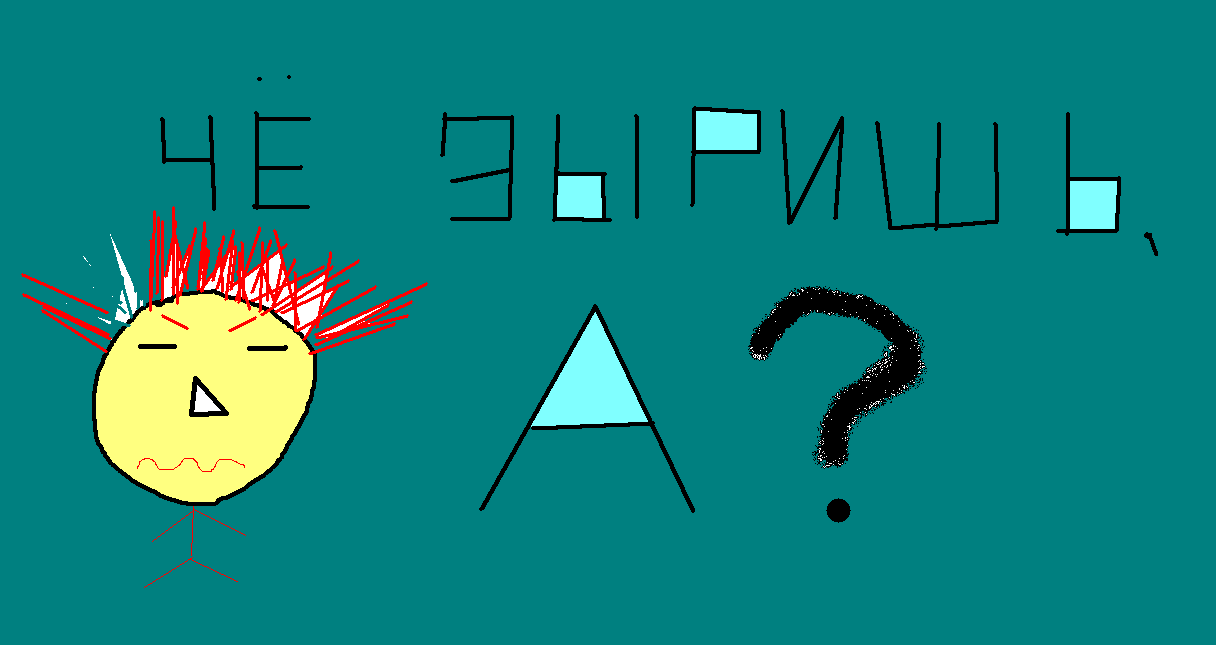 ЧЁ ЗЫРИШЬ,
А?